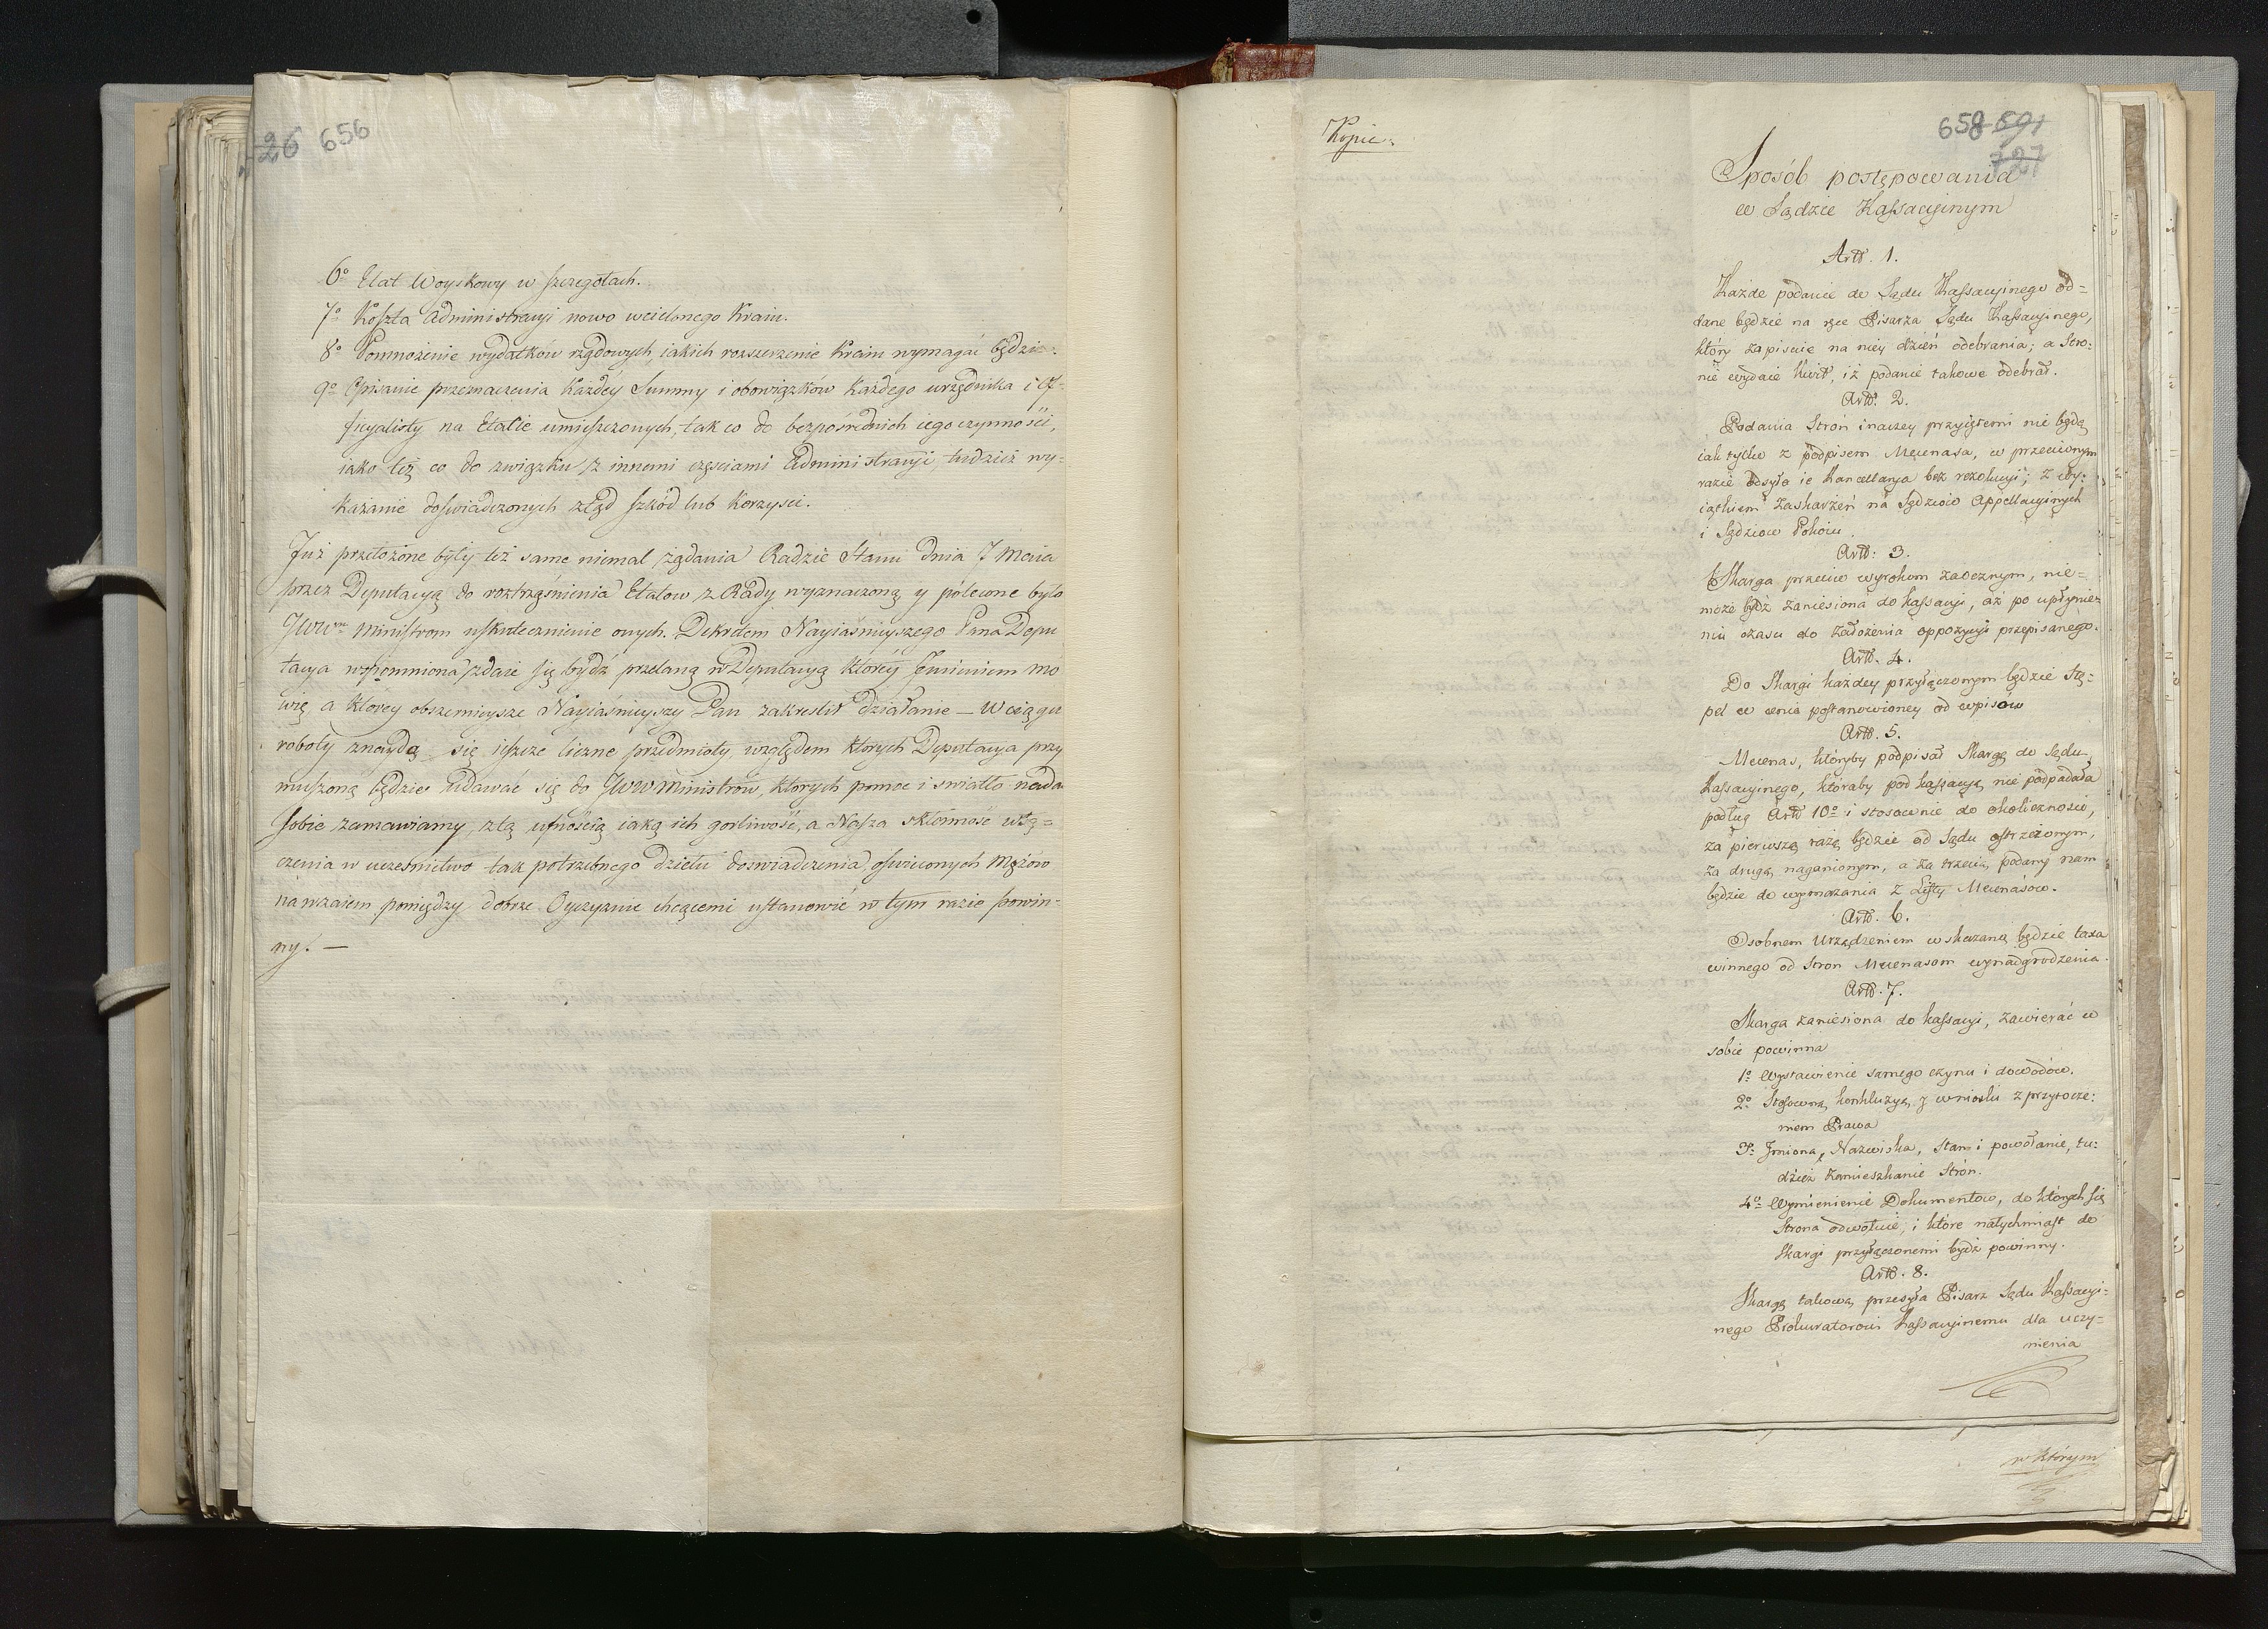 26 656
6° Etat Woyskowy w szczegołach.
7° Koszta Administracyi nowo wcielonego Kraiu.
8° Pomnożenie wydatków rządowych, iakich rozszerzenie Kraiu wymagać będzie.
9° Opisanie przeznaczenia każdéy Summy i obowiązkow każdego urzędnika i of=
ficyalisty na Etacie umieszczonych, tak co do bezpośrednich iego czynności,
iako też co do związku z innemi częsciami Administracyi, tudzież wy=
kazanie doświadczonych ztąd szkód lub korzyści.
Już przełożone były też same niemal żądania Radzie Stanu dnia 7 Maia
przez Deputacyą do roztrząśnienia Etatow z Rady wyznaczoną y polecone było
JWWm Ministrom uskutecznienie onych. Dekretem Nayiaśnieyszego Pana Depu
tacya wspomniona zdaie się bydź przelaną w Deputacyą któréy Jmieniem mo
wię a któréy obszernieysze Nayiaśnieyszy Pan zakreslił działanie — W ciągu
roboty znaydą się ieszcze liczne przedmioty, względem których Deputacya przy
muszoną będzie udawać się do JWW Ministrów, których pomoc i swiatło
sobie zamawiamy, ztą ufnością iaką ich gorliwość, a Nasza skłonność
czenia w uczestnictwo tak potrzebnego dziełu doświadczenia, oświeconych Mężów
nawzaiem pomiędzy dobrze Oyczyznie chcącemi ustanowić w tym razie powin=
ny. —
Kopie.
658 691
727
Sposób postępowania
w Sądzie Kassacyinym
Artt. 1.
Każde podanie do Sądu Kassacyinego od=
dane będzie na ręce Pisarza Sądu Kassacyinego,
który zapisuie na niey dzień odebrania; a Stro=
nie wydaie kwit, iż podanie takowe odebrał.
Artt. 2.
Podania Strón inaczey przyiętemi nie będą
iak tylko z podpisem Mecenasa, w przeciwnym
razie odsyła ie Kancellarya bez rezolucyi; z wy=
iątkiem zaskarżeń na Sędziow Appellacyinych
i Sędziow Pokoiu.
Artt. 3.
Skarga przeciw wyrokom zaocznym, nie=
może bydź zaniesiona do kassacyi, aż po upłynie=
niu czasu do założenia oppozycyi przepisanego.
Artt. 4.
Do Skargi każdey przyłączonym będzie Stę=
pel w cenie postanowioney od wpisow
Artt. 5.
Mecenas, któryby podpisał Skargę do Sądu
Kassacyinego, któraby pod kassacyą nie podpadała
podług Artt 10° i stosownie do okoliczności,
za pierwszą razą będzie od Sądu ostrzeżonym,
za drugą naganionym, a za trzecią, podany nam
będzie do wymazania z Listy Mecenasow.
Artt. 6.
Osobnem Urządzeniem wskazaną będzie taxa
winnego od Stron Mecenasom wynadgrodzenia.
Artt. 7.
Skarga zaniesiona do kassacyi, zawierać w
sobie powinna
1° Wystawienie samego czynu i dowodów.
2° Stosowną konkluzyą z wniosku z przytocze=
niem Prawa
3° Jmiona, Nazwiska, Stan i powołanie, tu=
dzież zamieszkanie Strón.
4° Wymienienie Dokumentow, do których się
Strona odwołuie, i które natychmiast do
Skargi przyłączonemi bydź powinny.
Artt. 8.
Skargę takową przesyła Pisarz Sądu Kassacyi=
nego Prokuratorowi Kassacyinemu dla uczy=
nienia
w którym